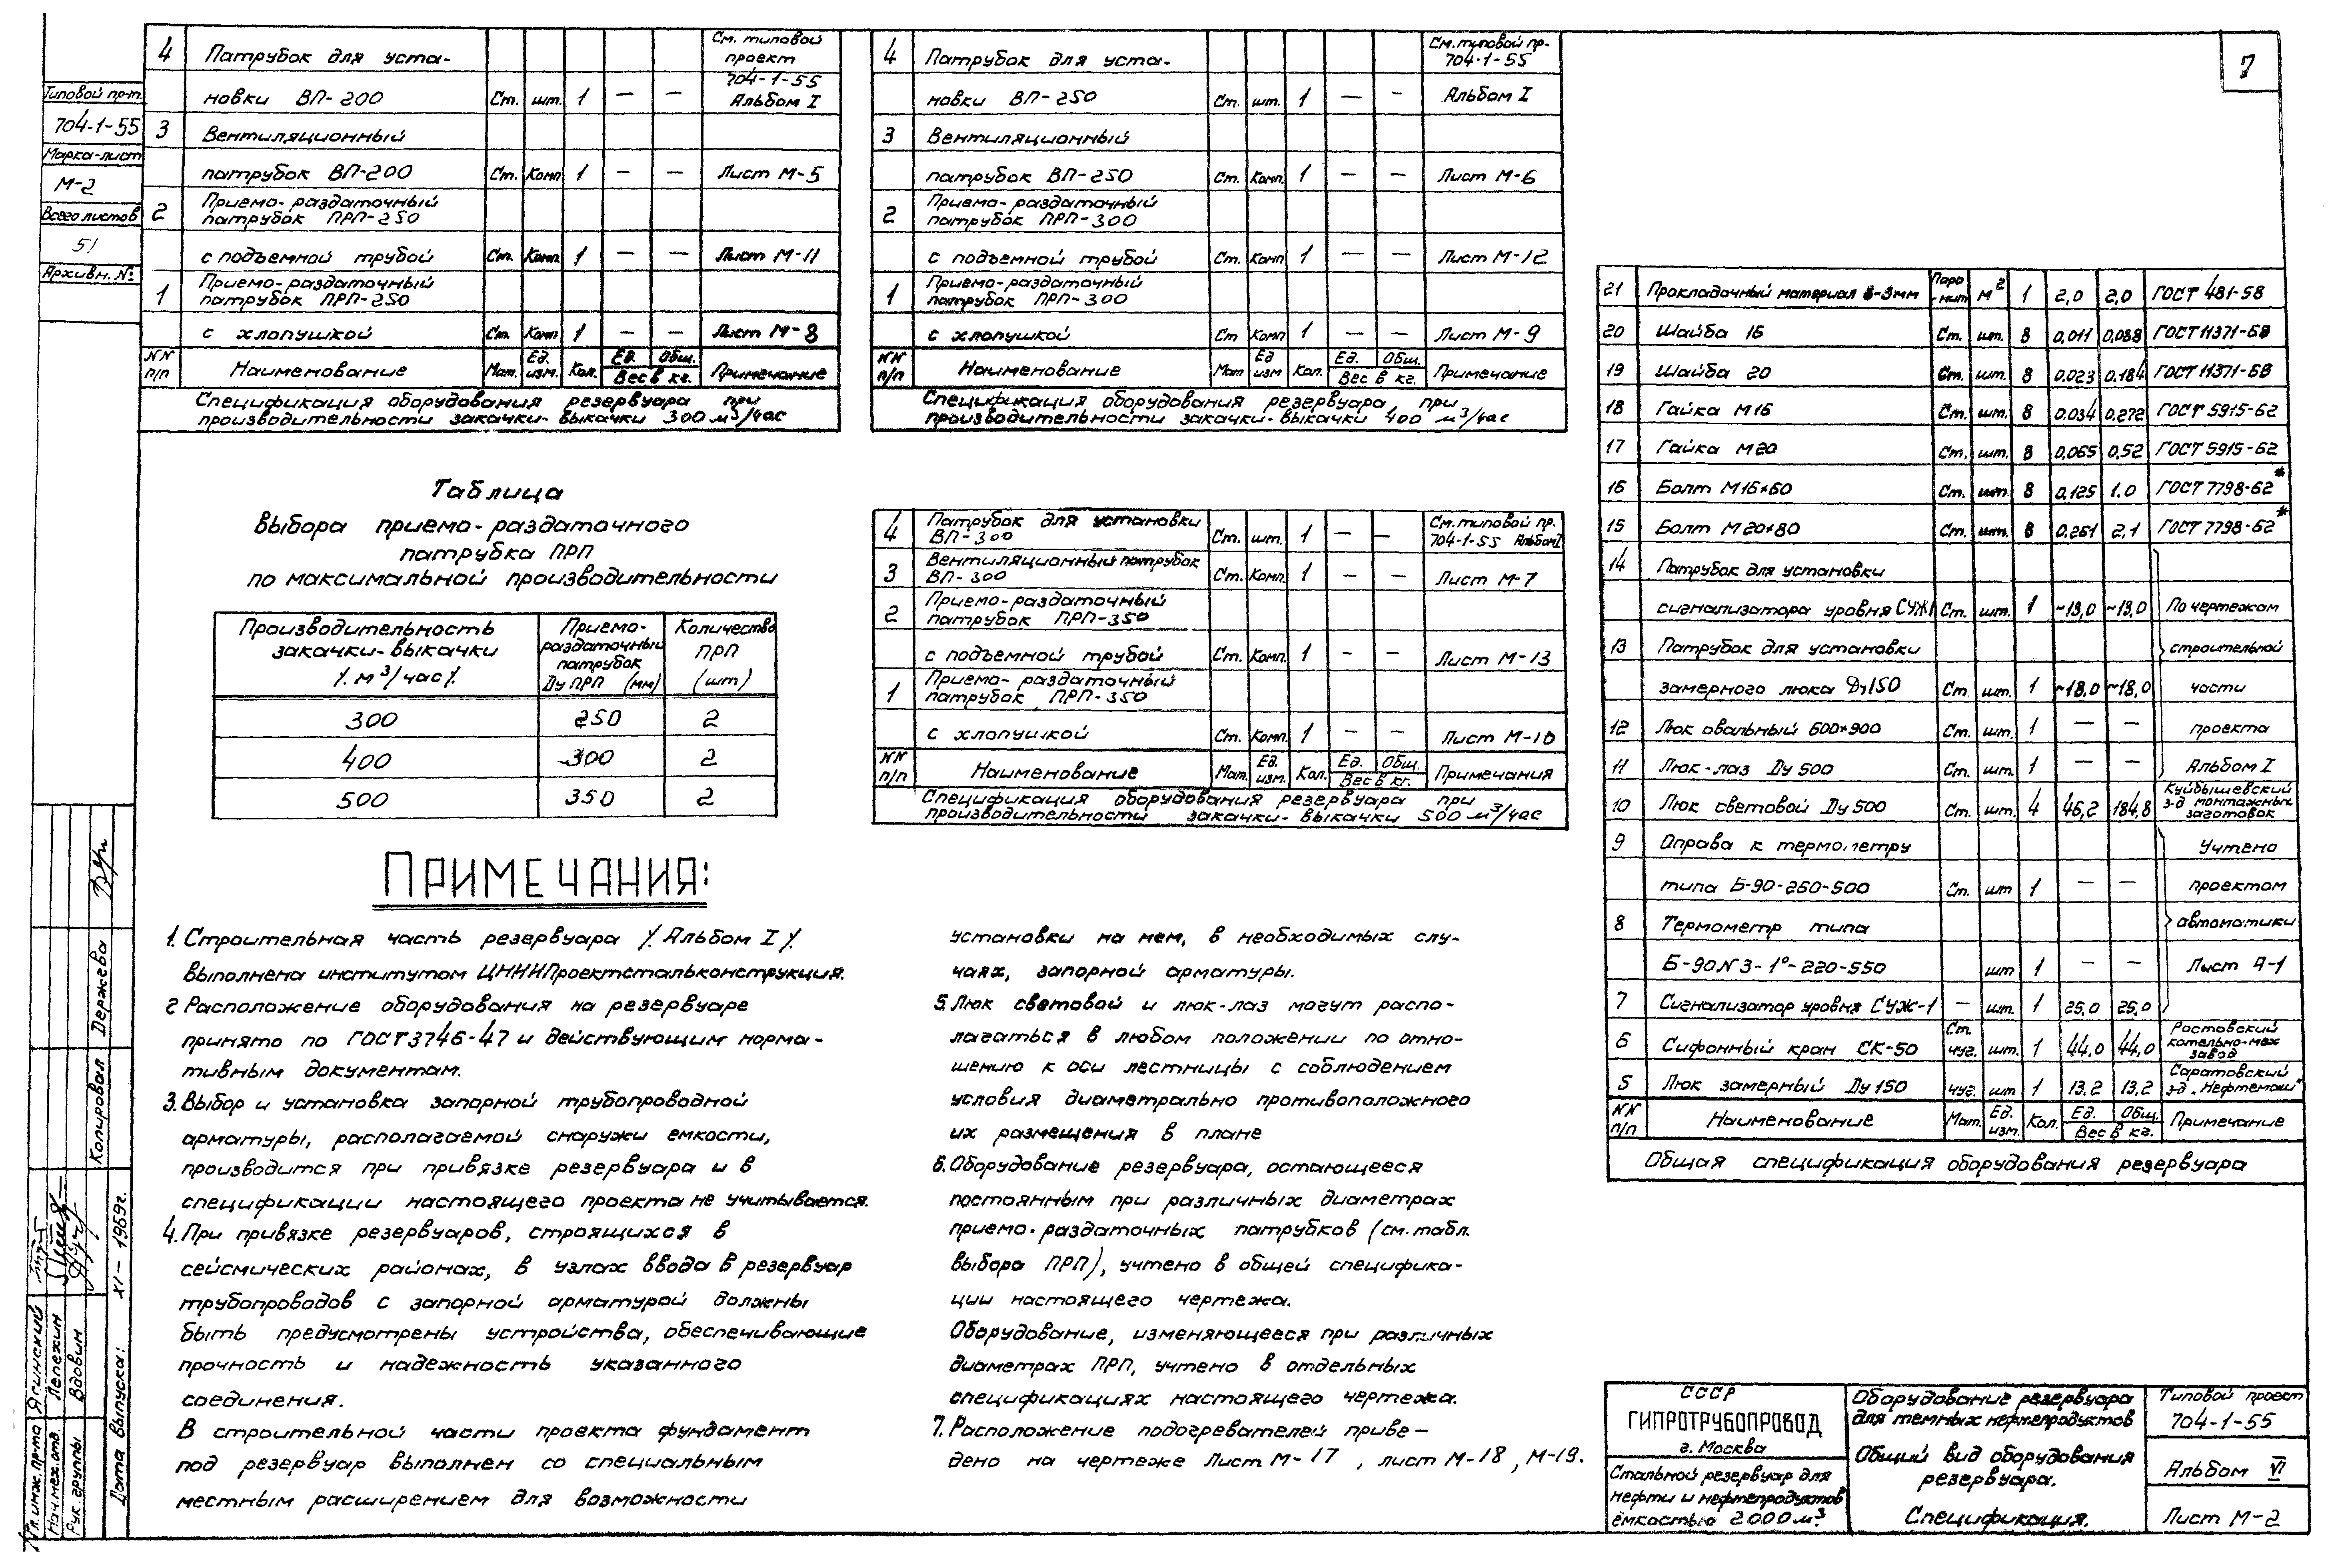 7
Типовой пр-т
704-1-55
Марка-лист
М-2
Всего листов
51
Архивн. №
4 Патрубок для уста- См. типовой проект 704-1-55
новки ВП-200 Ст. шт. 1 — — Альбом I
3 Вентиляционный
патрубок ВП-200 Ст. Комп 1 — — Лист М-5
2 Приемо-раздаточный
патрубок ПРП-250
с подъемной трубой Ст. Комп. 1 — — Лист М-11
1 Приемо-раздаточный
патрубок ПРП-250
с хлопушкой Ст. Комп 1 — — Лист М-8
NN п/п Наименование Мат. Ед. изм. Кол. Ед. Общ. Вес в кг. Примечание
Спецификация оборудования резервуара при
производительности закачки-выкачки 300 м³/час
4 Патрубок для уста- См. типовой пр- 704-1-55
новки ВП-250 Ст. шт. 1 — — Альбом I
3 Вентиляционный
патрубок ВП-250 Ст. Комп. 1 — — Лист М-6
2 Приемо-раздаточный
патрубок ПРП-300
с подъемной трубой Ст. Комп 1 — — Лист М-12
1 Приемо-раздаточный
патрубок ПРП-300
с хлопушкой Ст Комп 1 — — Лист М-9
NN п/п Наименование Мат Ед изм Кол. Ед. Общ. Вес в кг. Примечание
Спецификация оборудования резервуара при
производительности закачки-выкачки 400 м³/час
Таблица
выбора приемо-раздаточного
патрубка ПРП
по максимальной производительности
Производительность закачки-выкачки /м³/час/ Приемо-раздаточный патрубок Ду ПРП (мм) Количество ПРП (шт)
300 250 2
400 300 2
500 350 2
4 Патрубок для установки
ВП-300 Ст. шт. 1 — — См. типовой пр. 704-1-55 Альбом I
3 Вентиляционный патрубок
ВП-300 Ст. Комп. 1 — — Лист М-7
2 Приемо-раздаточный
патрубок ПРП-350
с подъемной трубой Ст. Комп. 1 — — Лист М-13
1 Приемо-раздаточный
патрубок ПРП-350
с хлопушкой Ст. Комп. 1 — — Лист М-10
NN п/п Наименование Мат. Ед. изм. Кол. Ед. Общ. Вес в кг. Примечания
Спецификация оборудования резервуара при
производительности закачки-выкачки 500 м³/час
21 Прокладочный материал 3-3мм Паро-нит м² 1 2,0 2,0 ГОСТ 481-58
20 Шайба 16 Ст. шт. 8 0,011 0,088 ГОСТ 11371-68
19 Шайба 20 Ст. шт. 8 0.023 0.184 ГОСТ 11371-68
18 Гайка М16 Ст. шт. 8 0.034 0.272 ГОСТ 5915-62
17 Гайка М20 Ст. шт. 8 0,065 0,52 ГОСТ 5915-62
16 Болт М16×60 Ст. шт. 8 0,125 1.0 ГОСТ 7798-62*
15 Болт М20×80 Ст. шт. 8 0.261 2,1 ГОСТ 7798-62*
14 Патрубок для установки
сигнализатора уровня СУЖ1 Ст. шт. 1 ~13,0 ~13,0 По чертежам
13 Патрубок для установки строительной
замерного люка Ду150 Ст. шт. 1 ~18,0 ~18,0 части
12 Люк овальный 600×900 Ст. шт. 1 — — проекта
11 Люк-лаз Ду 500 Ст. шт. 1 — — Альбом I
10 Люк световой Ду 500 Ст. шт. 4 46,2 184,8 Куйбышевский з-д монтажных заготовок
9 Оправа к термометру Учтено
типа Б-90-260-500 Ст. шт 1 — — проектом
8 Термометр типа автоматики
Б-90 N3-1°-220-550 шт 1 — — Лист А-1
7 Сигнализатор уровня СУЖ-1 — шт. 1 25,0 25,0
6 Сифонный кран СК-50 Ст. чуг. шт. 1 44,0 44,0 Ростовский котельно-мех завод
5 Люк замерный Ду 150 чуг. шт 1 13.2 13,2 Саратовский з-д „Нефтемаш"
NN п/п Наименование Мат. Ед. изм. Кол. Ед. Общ. Вес в кг. Примечание
Общая спецификация оборудования резервуара
ПРИМЕЧАНИЯ:
1. Строительная часть резервуара /Альбом I/
выполнена институтом ЦНИИПроектстальконструкция.
2 Расположение оборудования на резервуаре
принято по ГОСТ 3746-47 и действующим норма-
тивным документам.
3. Выбор и установка запорной трубопроводной
арматуры, располагаемой снаружи емкости,
производится при привязке резервуара и в
спецификации настоящего проекта не учитывается.
4. При привязке резервуаров, строящихся в
сейсмических районах, в узлах ввода в резервуар
трубопроводов с запорной арматурой должны
быть предусмотрены устройства, обеспечивающие
прочность и надежность указанного
соединения.
В строительной части проекта фундамент
под резервуар выполнен со специальным
местным расширением для возможности
установки на нем, в необходимых слу-
чаях, запорной арматуры.
5. Люк световой и люк-лаз могут распо-
лагаться в любом положении по отно-
шению к оси лестницы с соблюдением
условия диаметрально противоположного
их размещения в плане
6. Оборудование резервуара, остающееся
постоянным при различных диаметрах
приемо-раздаточных патрубков (см. табл.
выбора ПРП), учтено в общей специфика-
ции настоящего чертежа.
Оборудование, изменяющееся при различных
диаметрах ПРП, учтено в отдельных
спецификациях настоящего чертежа.
7. Расположение подогревателей приве-
дено на чертеже Лист М-17, лист М-18, М-19.
Копировал Держгева
Дата выпуска: XI-1969г.
Гл. инж. пр-та Ясинский
Нач. мех. отд. Лепехин
Рук. группы Вдовин
СССР
ГИПРОТРУБОПРОВОД
г. Москва
Стальной резервуар для
нефти и нефтепродуктов
ёмкостью 2000 м³
Оборудование резервуара
для темных нефтепродуктов
Общий вид оборудования
резервуара.
Спецификация.
Типовой проект
704-1-55
Альбом VI
Лист М-2